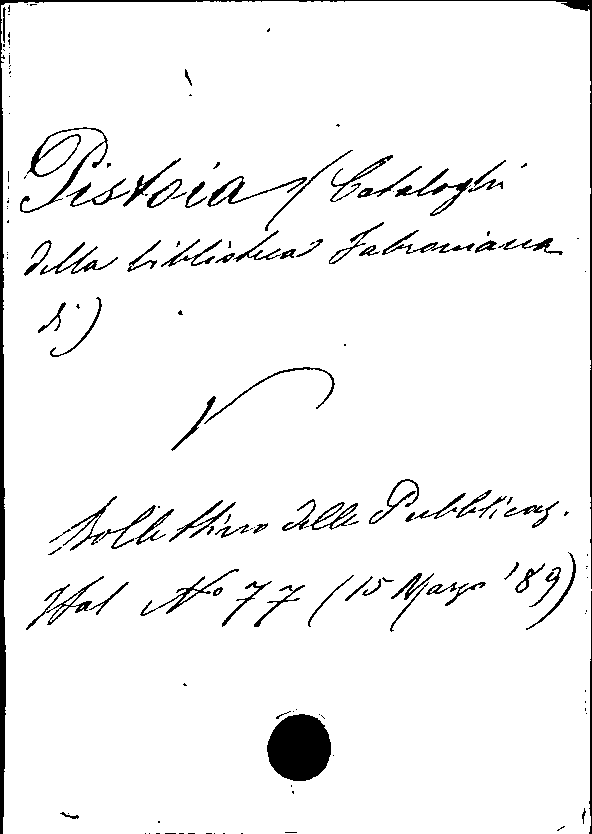 Pistoia (Cataloghi
della biblioteca Fabroniana
di)
V
Bollettino delle Pubblicaz.
Ital Nº 77 (15 Marzo '89)